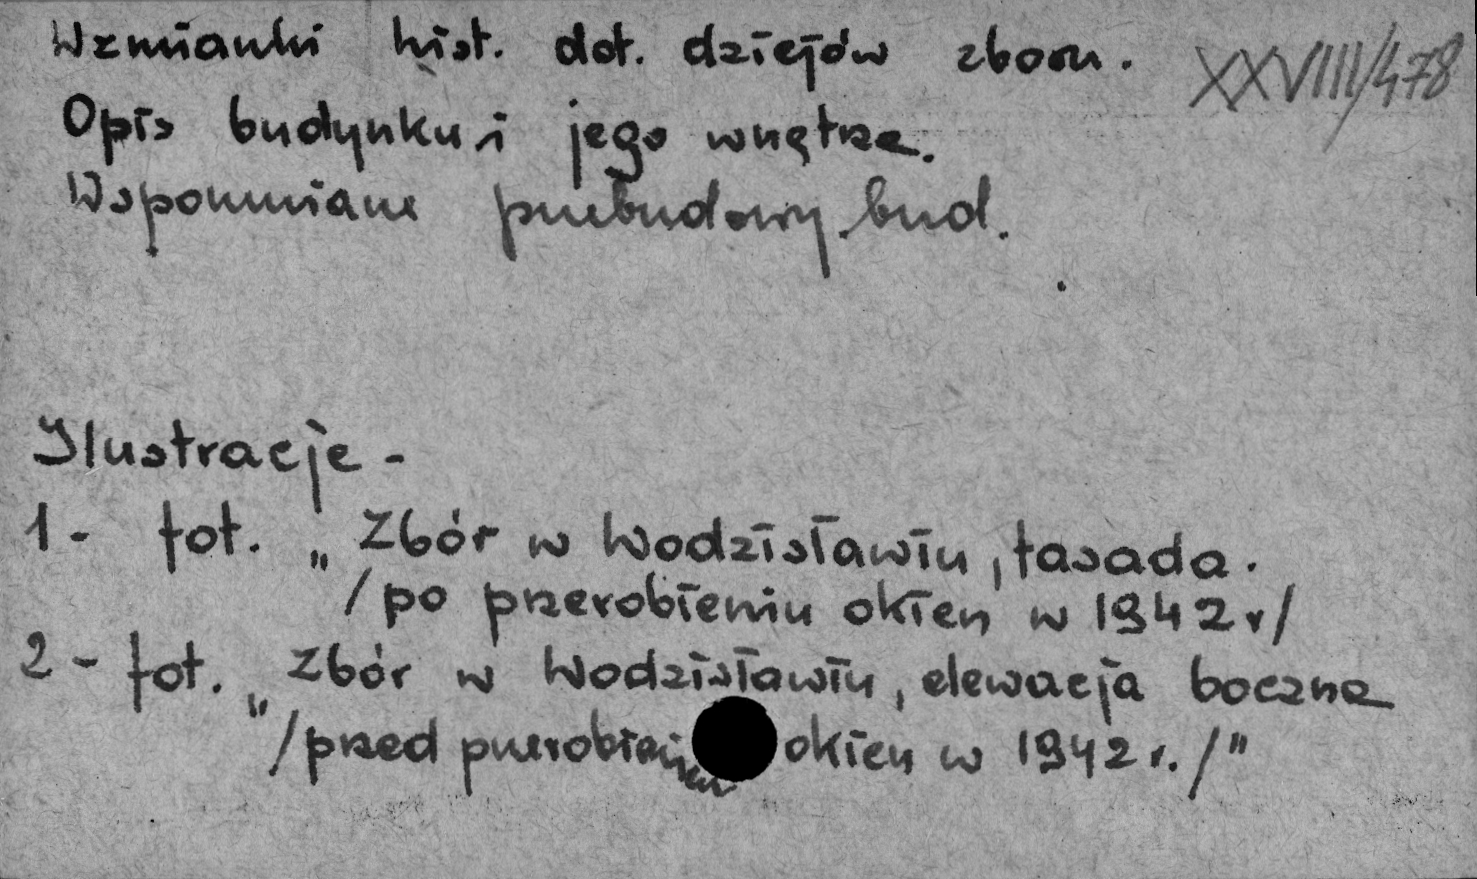 Wzmianki hist. dot. dziejów zboru. XXVIIII/478
Opis budynku i jego wnętrza.
Wspomniane przebudowy bud.
Ilustracje -
1 - fot. „Zbór w Wodzisławiu, fasada.
/po przerobieniu okien w 1942 r/
2 - fot. „Zbór w Wodzisławiu, elewacja boczna
/przed przerobieniem okien w 1942 r./"